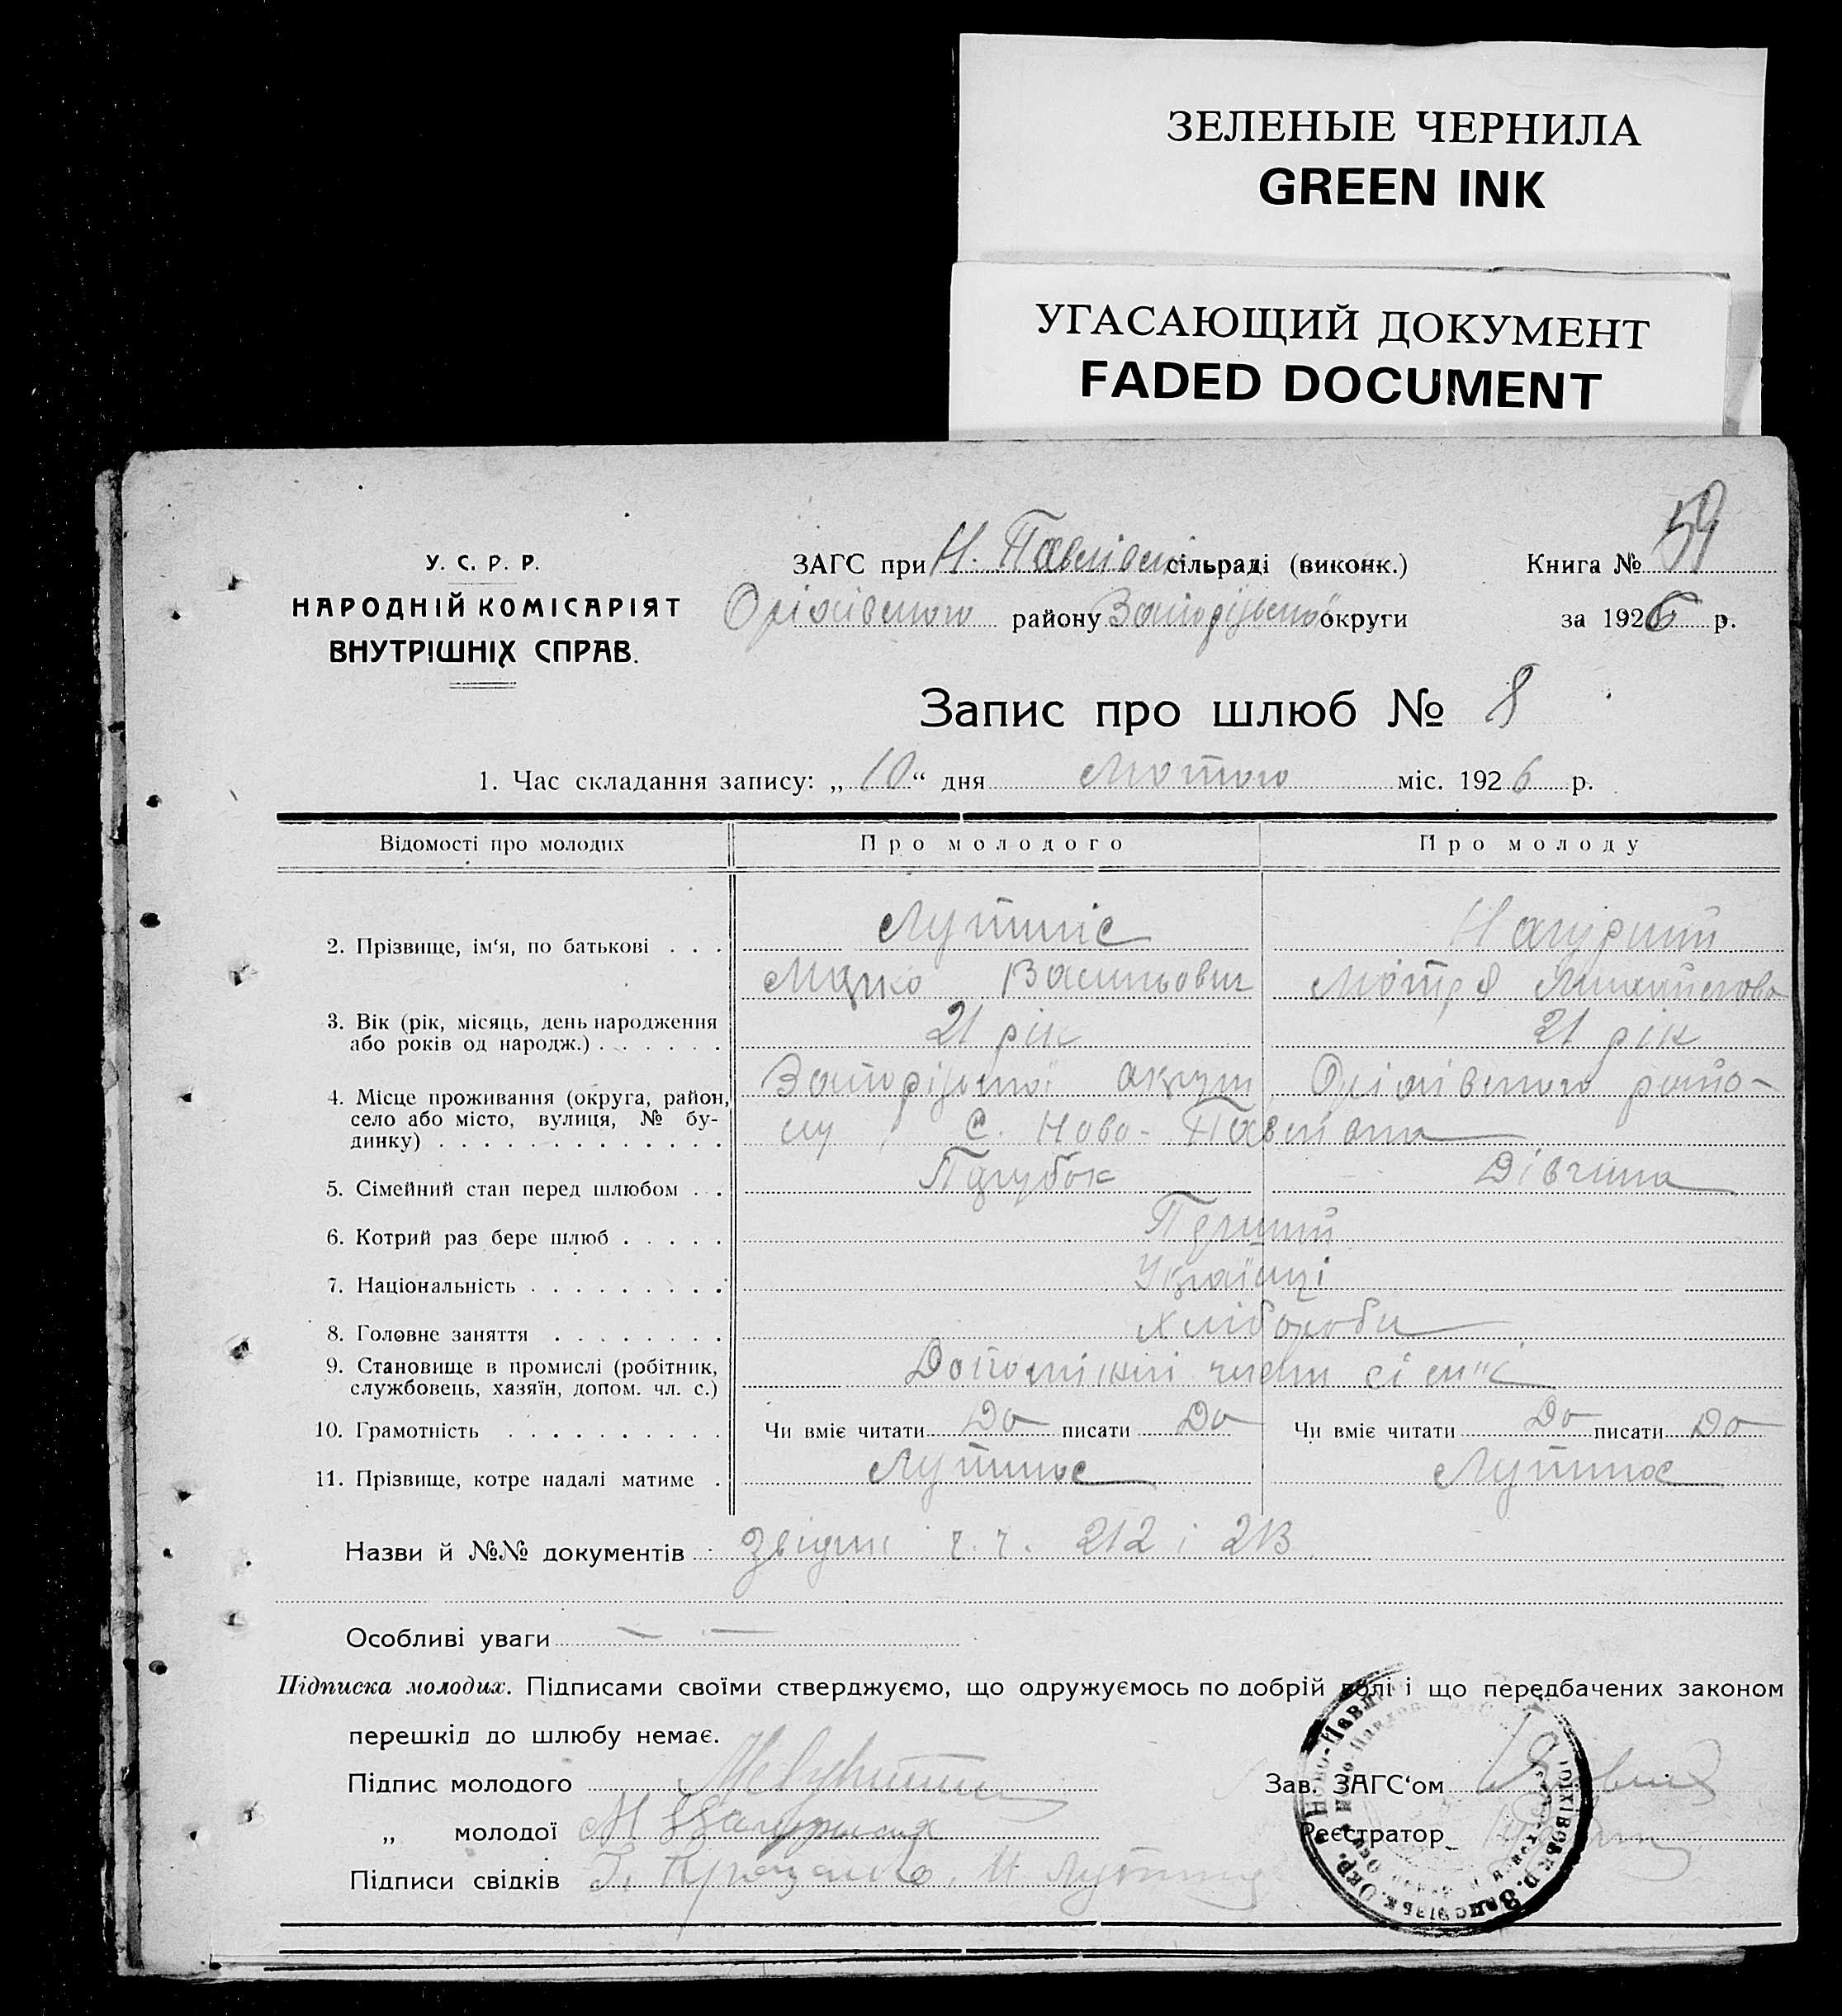 ЗЕЛЕНЫЕ ЧЕРНИЛА
GREEN INK
УГАСАЮЩИЙ ДОКУМЕНТ
FADED DOCUMENT
59
У. С. Р. Р.
НАРОДНІЙ КОМІСАРІЯТ
ВНУТРІШНІХ СПРАВ.
ЗАГС при Н. Павлівські сільраді (виконк.) Книга №
Оріхівського району Запорізької округи за 1926 р.
Запис про шлюб № 8
1. Час складання запису: „ 10 “ дня Лютого міс. 1926 р.
Відомості про молодих Про молодого Про молоду
2. Прізвище, ім‘я, по батькові . . .
Марко Васильович Мотря Михайлова
3. Вік (рік, місяць, день народження
або років од народж.) . . . . . . 21 рік 21 рік
4. Місце проживання (округа, район, Запорізької округи Оріхівського райо-
село або місто, вулиця, № бу-
динку) . . . . . . . . . . . . . ну, с. Ново-Павлівка
5. Сімейний стан перед шлюбом . . Парубок Дівчина
6. Котрий раз бере шлюб . . . . . Перший
7. Національність . . . . . . . . . Українці
8. Головне заняття . . . . . . . . Хлібороби
9. Становище в промислі (робітник,
службовець, хазяїн, допом. чл. с.) Допоміжні члени сім"ї
10. Грамотність . . . . . . . . . . Чи вміє читати Да писати Да Чи вміє читати Да писати Да
11. Прізвище, котре надалі матиме .
Назви й №№ документів звідки ч.ч. 212 і 213
Особливі уваги — —
Підписка молодих. Підписами своїми стверджуємо, що одружуємось по добрій волі і що передбачених законом
перешкід до шлюбу немає.
Підпис молодого Зав. ЗАГС‘ом
„ молодої Реєстратор
Підписи свідків